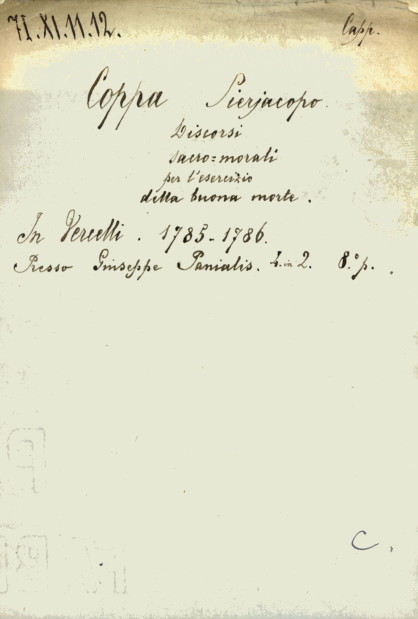 71.XI.11.12.
Capp.
Coppa Pierjacopo.
Discorsi
sacro=morali
per l'esercizio
della buona morte.
In Vercelli. 1785-1786.
Presso Giuseppe Panialis. 4. in 2. 8.° p.
C.